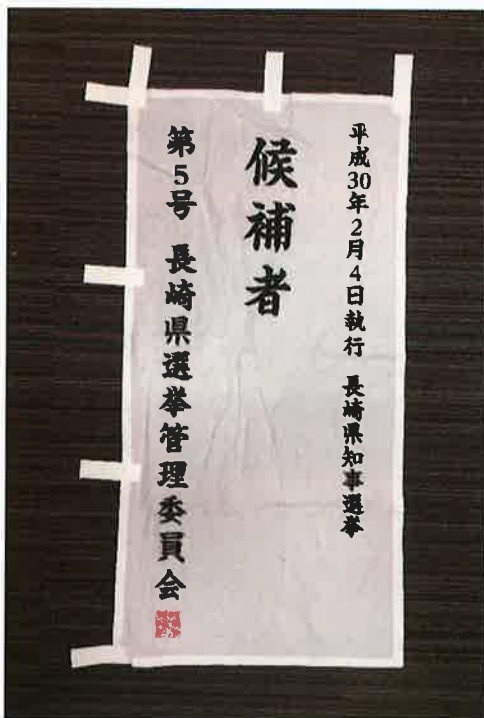 平成30年2月4日執行　長崎県知事選挙
候補者
第5号　長崎県選挙管理委員会